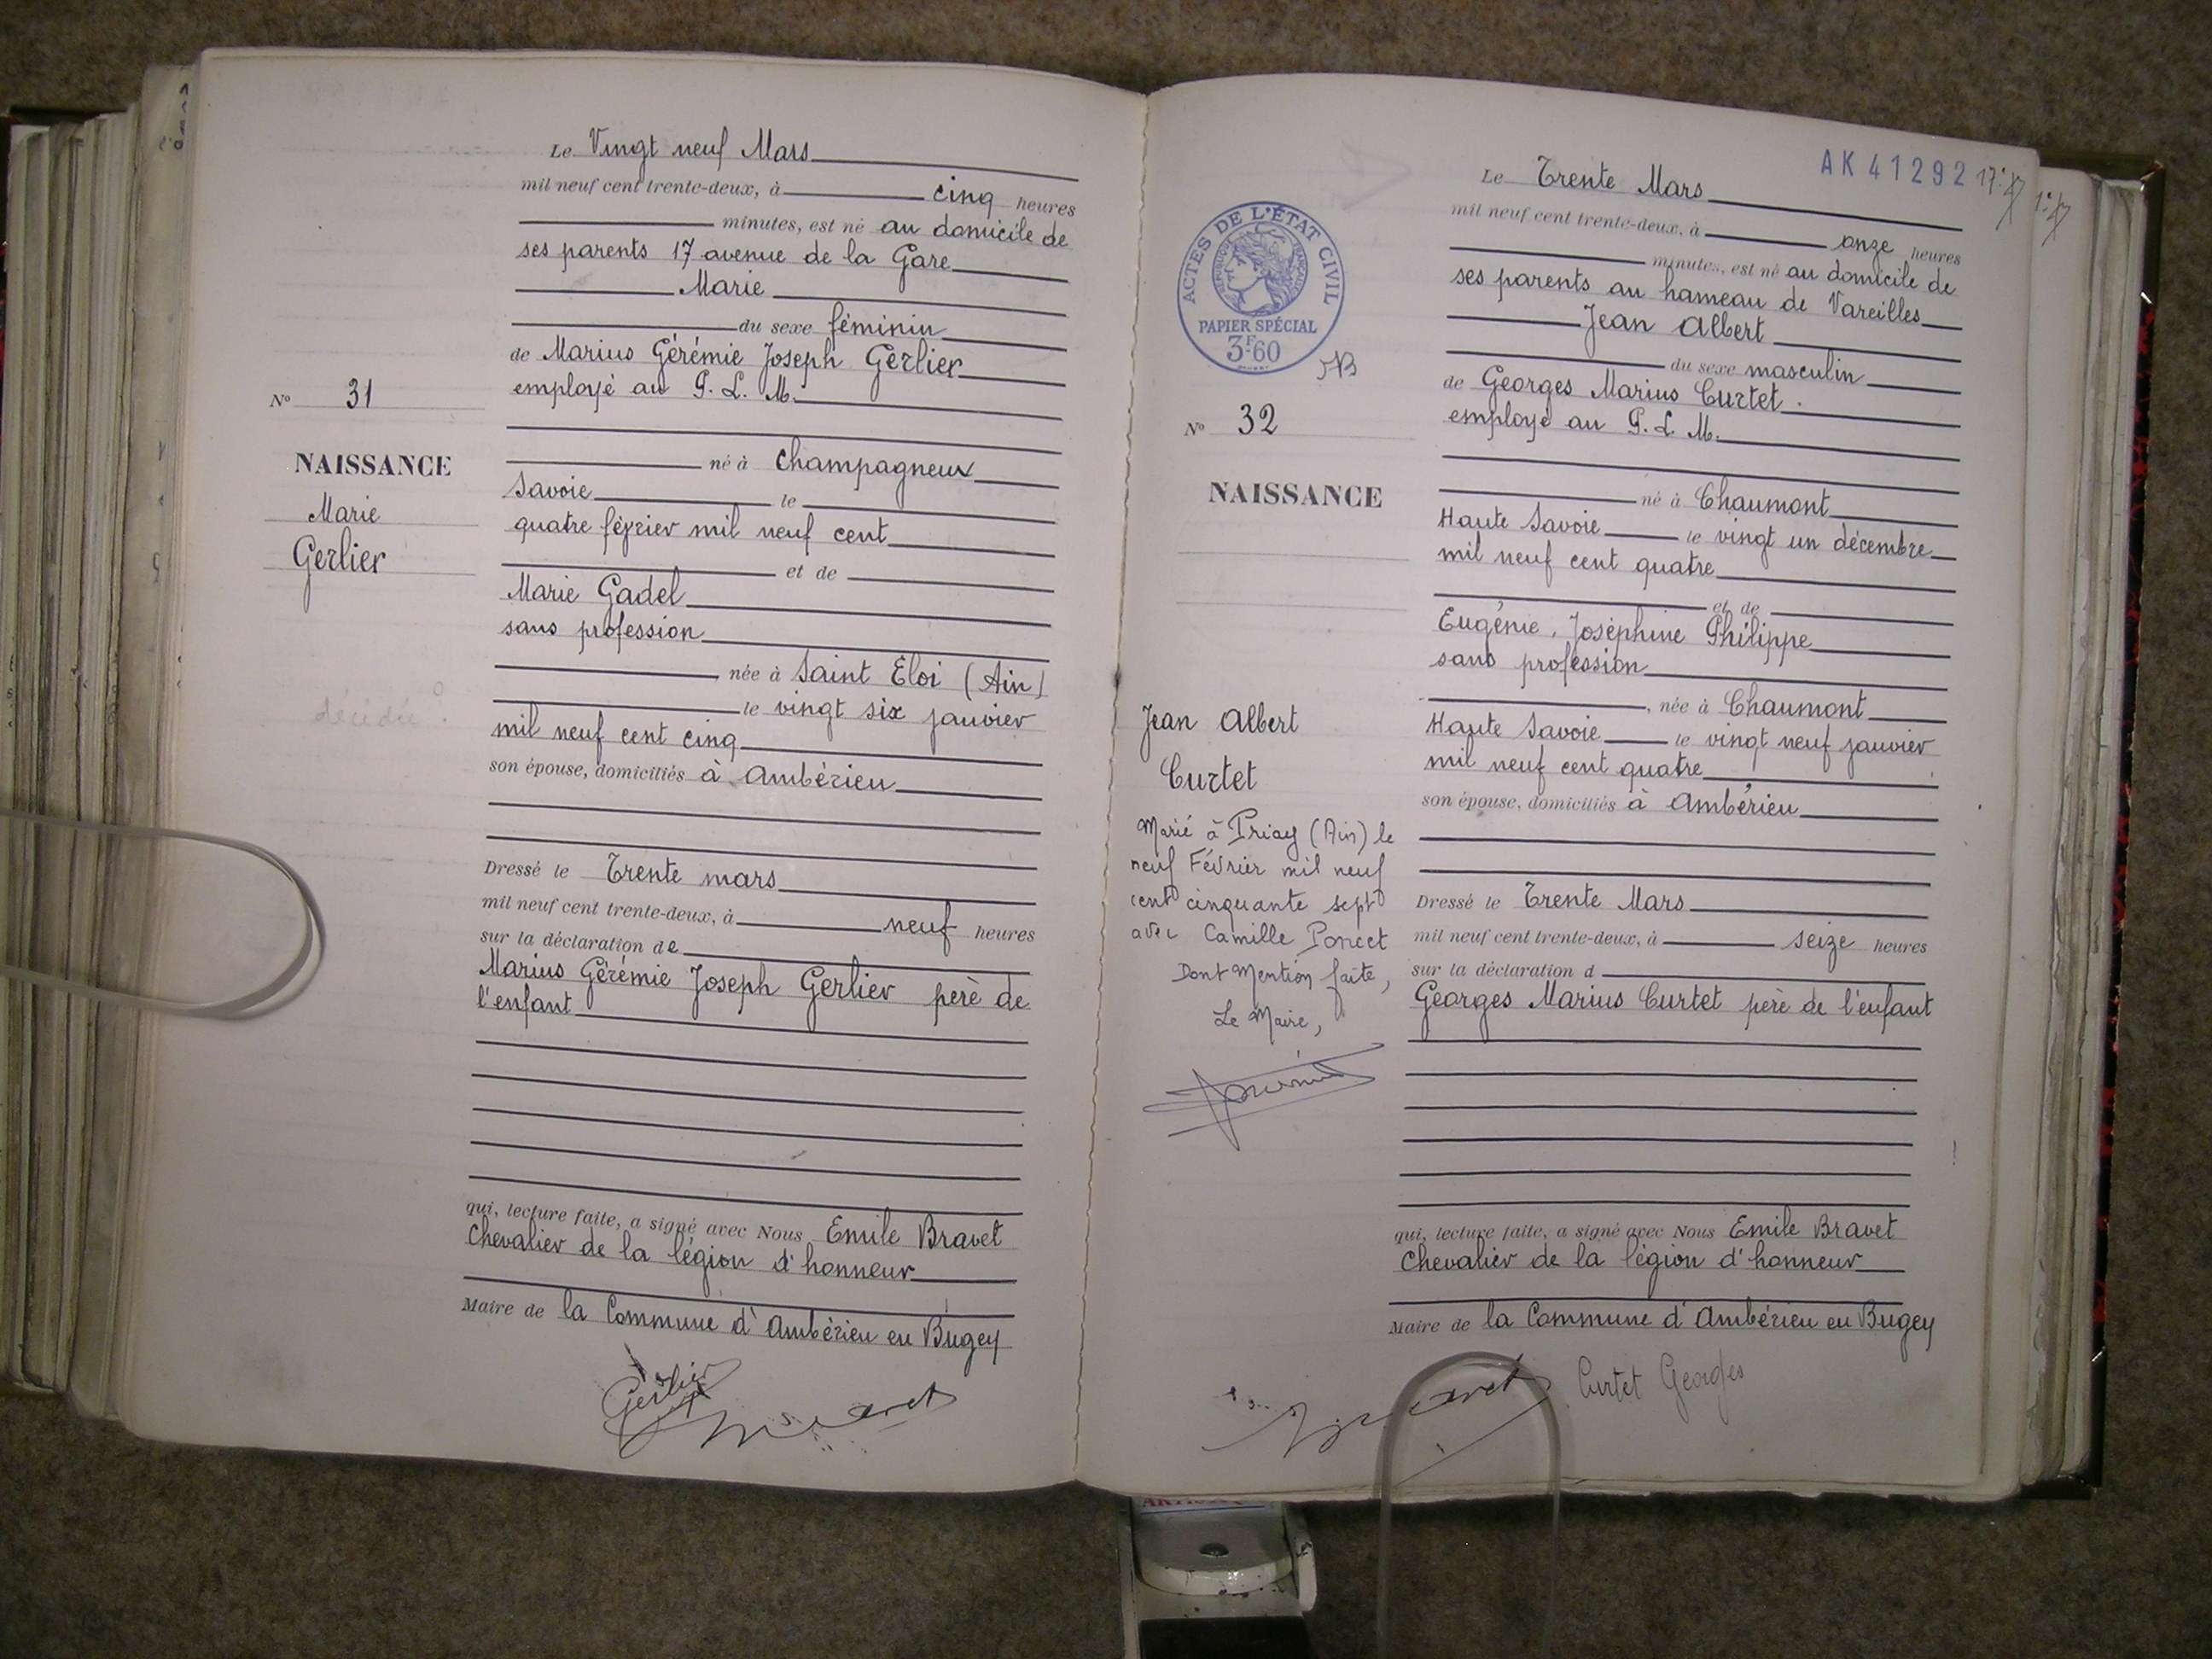 Le Vingt neuf Mars
mil neuf cent trente-deux, à cinq heures
minutes, est né au domicile de
ses parents 17 avenue de la Gare
Marie
du sexe féminin
de Marius Gérémie Joseph Gerlier
employé au P. L. M.
né à Champagneux
Savoie le
quatre février mil neuf cent
et de
Marie Gadel
sans profession
née à Saint Eloi (Ain)
le vingt six janvier
mil neuf cent cinq
son épouse, domiciliés à Ambérieu
Dressé le Trente mars
mil neuf cent trente-deux, à neuf heures
sur la déclaration de
Marius Gérémie Joseph Gerlier père de
l'enfant
qui, lecture faite, a signé avec Nous Emile Bravet
Chevalier de la légion d'honneur
Maire de la Commune d'Ambérieu en Bugey
Gerlier
Bravet
N° 31
NAISSANCE
Marie
Gerlier
décédée
AK 41292
Le Trente Mars
mil neuf cent trente-deux, à onze heures
minutes, est né au domicile de
ses parents au hameau de Vareilles
Jean Albert
du sexe masculin
de Georges Marius Curtet.
employé au P. L. M.
né à Chaumont
Haute Savoie le vingt un décembre
mil neuf cent quatre
et de
Eugénie, Joséphine Philippe
sans profession
, née à Chaumont
Haute Savoie le vingt neuf janvier
mil neuf cent quatre
son épouse, domiciliés à Ambérieu
Dressé le Trente Mars
mil neuf cent trente-deux, à seize heures
sur la déclaration d
Georges Marius Curtet père de l'enfant
qui, lecture faite, a signé avec Nous Emile Bravet
Chevalier de la légion d'honneur
Maire de la Commune d'Ambérieu en Bugey
Bravet
Curtet Georges
ACTES DE L'ÉTAT CIVIL
RÉPUBLIQUE FRANÇAISE
PAPIER SPÉCIAL
3F.60
N° 32
NAISSANCE
Jean Albert
Curtet
Marié à Priay (Ain) le
neuf Février mil neuf
cent cinquante sept
avec Camille Poncet
Dont Mention faite,
Le Maire,